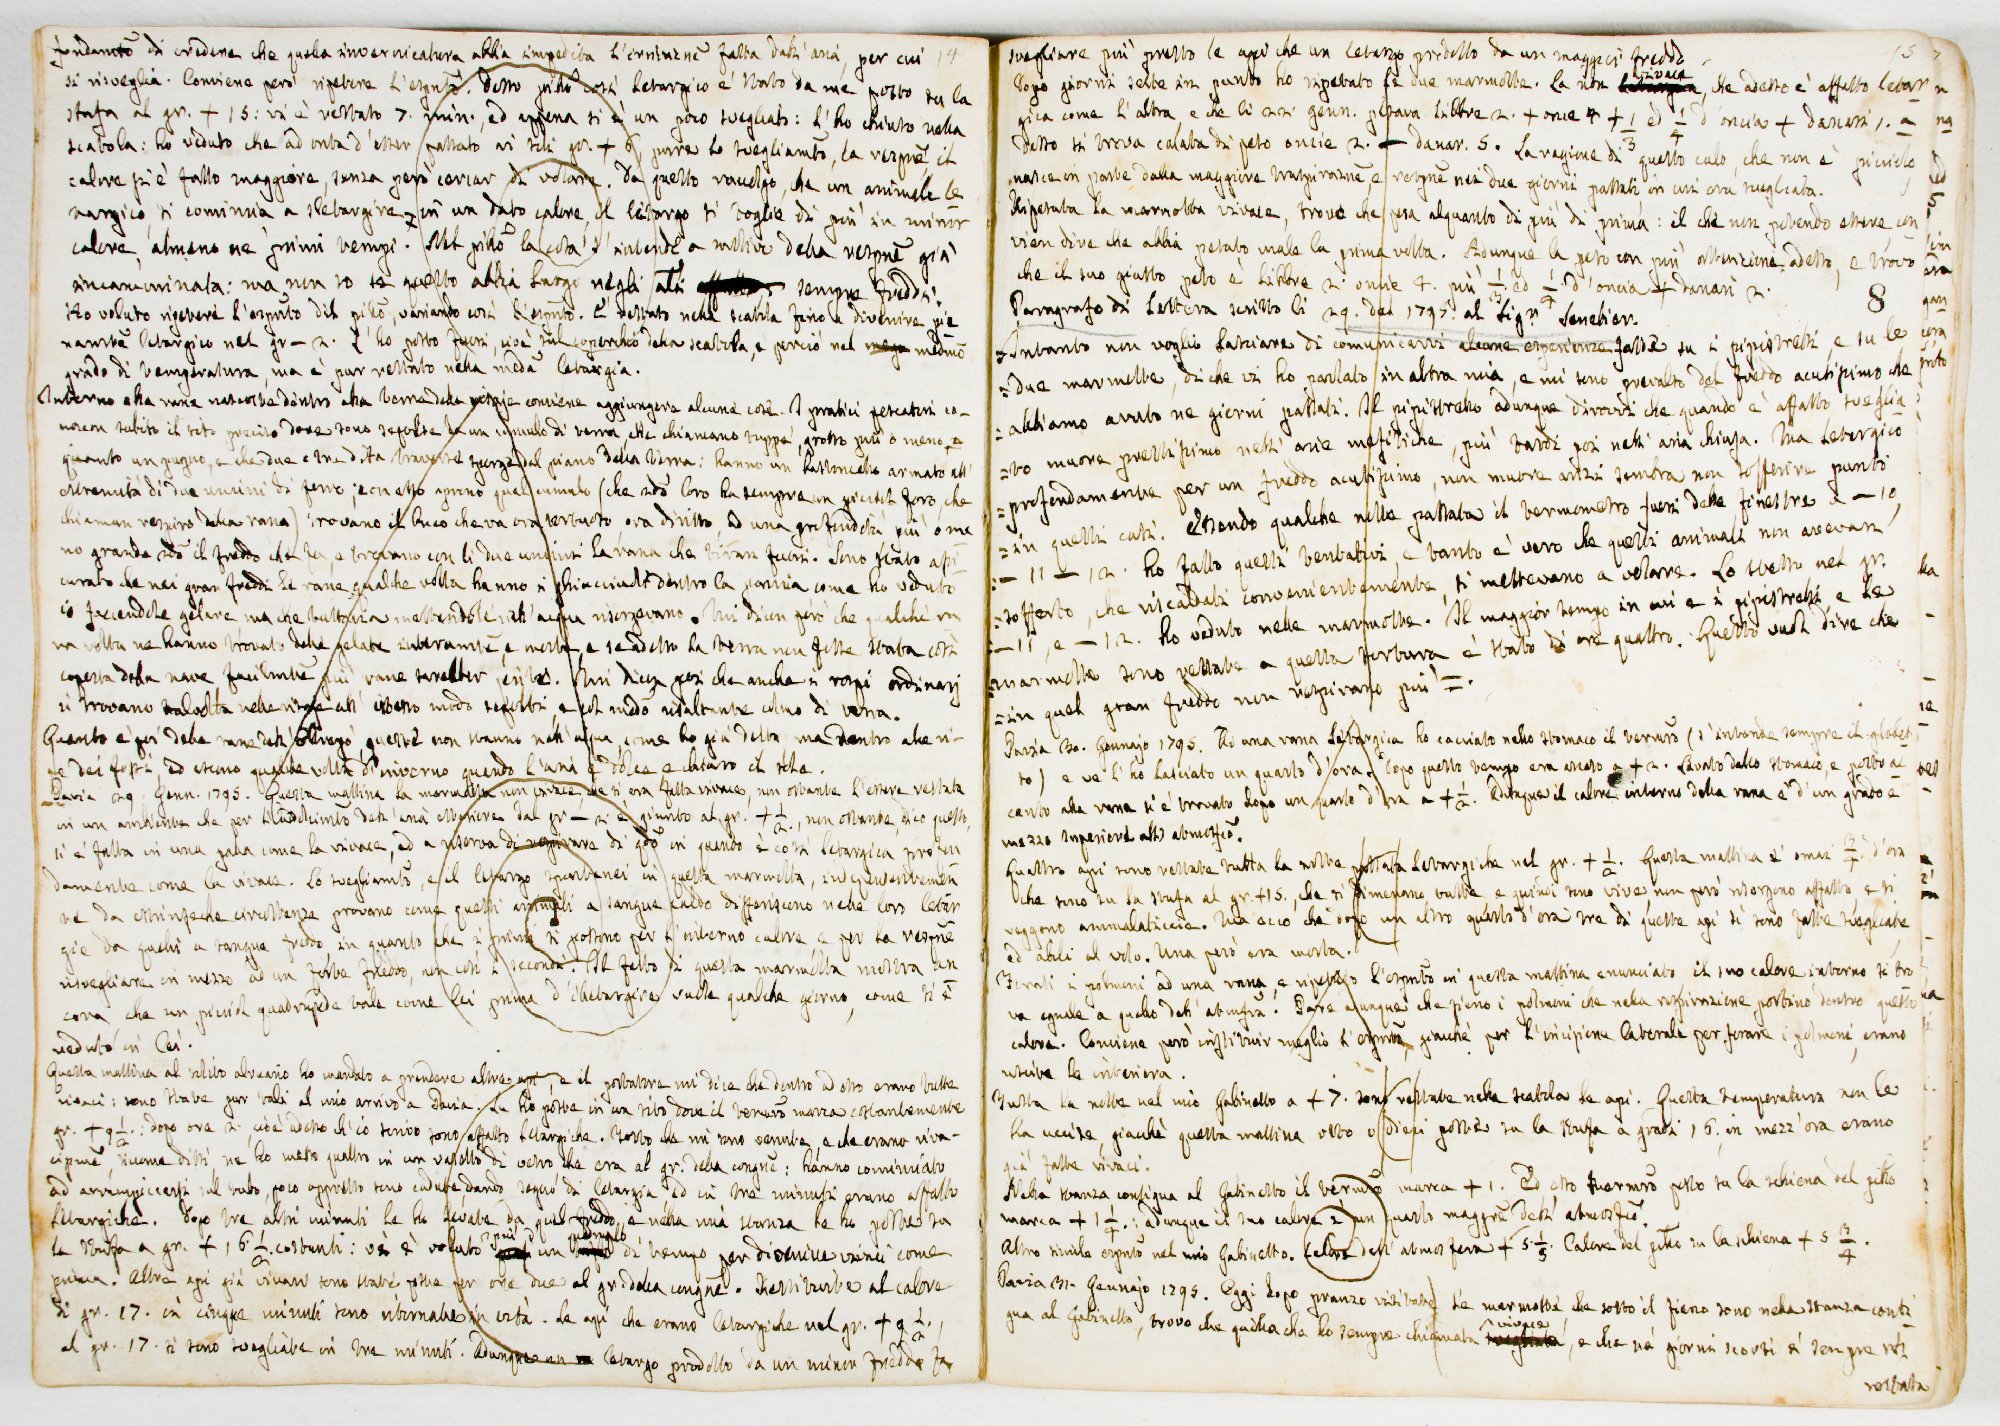 fondamto di credere che quella inverniciatura abbia impedita l'irritazne fatta dall'aria, per cui 14
si risveglia. Conviene però ripetere l'espmto. Detto pillo così letargico è stato da me posto su la
stufa al gr. + 15: vi è restato 7. min., ed appena si è un poco svegliato: l'ho chiuso nella
scatola: ho veduto che ad onta d'esser passato ai soli gr. + 6, pure lo svegliamto, la respne, il
calore si è fatto maggiore, senza però cercar di volare. Da questo raccolgo, che un animale le
targico, si comincia a sletargire in un dato calore, il letargo si toglie di più in minor
calore, almeno ne' primi tempi. Nel pillo la cosa s'intende a motivo della respne già
incamminata: ma non so se questo abbia luogo negli altri sempre freddi.
Ho voluto ripetere l'espmto del pillo, variando così l'espmto. È restato nella scatola fino a divenire pie
namte letargico nel gr – 2. L'ho posto fuori, cioè sul coperchio della scatola, e perciò nel medmo
grado di temperatura, ma è pur restato nella meda letargia.
Intorno alle rane nascoste dentro alla terra della conviene aggiungere alcune cose. I pratici pescatori co-
noscon subito il sito preciso dove sono sepolte da un cumulo di terra, che chiamano tuppa, grosso più o meno
quanto un pugno, e che due o tre dita traverse sporge dal piano della terra: hanno un bastoncello armato all'
estremità di due uncini di ferro; con esso aprono quel cumulo (che sdo loro ha sempre un piccol foro, che
chiaman respiro della rana) trovano il buco che va ora tortuoso ora diritto ad una profondità più o me
no grande sdo il freddo che fa, e trovano con li due uncini la rana che tiran fuori. Sono stato assi
curato che nei gran freddi le rane qualche volta hanno i ghiacciuoli dentro la pancia come ho veduto
io facendole gelare ma che tuttavia mettendole nell'acqua risorgevano. Mi dicon però che qualche ra
na volta ne hanno trovato delle gelate interamte, e morte, e se adesso la terra non fosse stata così
coperta dalla neve facilmte più rane sarebber perite. Mi dicon poi che anche i rospi ordinarj
si trovano talvolta nelle risaie all'istesso modo sepolti, e col medo risaltante colmo di terra.
Quanto è poi delle rane queste non stanno nell'acqua, come ho già detto ma dentro alle ri-
ve dei fossi, ed escono qualche volta d'inverno quando l'aria è dolce e chiaro il sole.
Pavia 29. Genn. 1795. Questa mattina la marmotta non vivace, che si era fatta vivace, non ostante l'essere restata
in un ambiente che per l'addolcimto dell'aria esteriore dal gr – 2 è giunto al gr. + 1/2., non ostante, dico questo,
si è fatta in una palla come la vivace, ed a riserva di respirare di qdo in quando è così letargica profon
damente come la vivace. Lo svegliamto, e il letargo spontanei in questa marmotta, indipendentemen
te da estrinseche circostanze provano come questi animali a sangue caldo differiscono nelle loro letar
gie da quelli a sangue freddo in quanto che i primi si possono per l'interno calore, e per la respne
risvegliare in mezzo ad un forte freddo, non così i secondi. Il fatto di questa marmotta mostra an
cora che un piccol quadrupede tale come lei prima d'illetargire vuole qualche giorno, come si è
veduto in lei.
Questa mattina al solito alveario ho mandato a prendere altre api, e il portatore mi dice che dentro ad esso erano tutte
vivaci: sono state pur tali al mio arrivo a Pavia. Le ho poste in un sito dove il termro marca costantemente
gr. + 9 1/2.: dopo ore 2. cioè adesso ch'io scrivo sono affatto letargiche. Tosto che mi sono venute, e che erano viva-
cissime, siccome dissi, ne ho messo quattro in un vasetto di vetro che era al gr. della congne: hanno cominciato
ad arrampiccarsi sul vaso, poco appresso sono cadute dando segno di letargia ed in tre minuti erano affatto
letargiche. Dopo tre altri minuti le ho levate da quel freddo, e nella mia stanza le ho poste su
la stufa a gr. + 16 1/2. costanti: vi è voluto più d'un quadruplo di tempo per divenire vivaci come
prima. Altre api già vivaci sono state poste per ore due al gr. della congne. Restituite al calore
di gr. 17. in cinque minuti sono ritornate in vita. Le api che erano letargiche nel gr. + 9 1/2.,
al gr. 17. si sono svegliate in tre minuti. Adunque un letargo prodotto da un minor freddo fa
svegliare più presto le api che un letargo prodotto da un maggior freddo. 15
Dopo giorni sette in punto ho ripesato le due marmotte. La non vivace, che adesso è affatto letar
gica come l'altra, e che li 22 genn. pesava libbre 2. + once 4 + 1/3 ed 1/4 d'oncia + danari 1. a
desso si trova calata di peso oncie 2. – danar. 5. La ragione di questo calo, che non è piccolo,
nasce in parte dalla maggiore traspirazne, e respne nei due giorni passati in cui era svegliata.
Ripesata la marmotta vivace, trovo che pesa alquanto di più di prima: il che non potendo essere con
vien dire che abbia pesato male la prima volta. Adunque la peso con più attenzione adesso, e trovo
che il suo giusto peso è libbre 2. oncie 4. più 1/3. ed 1/4. d'oncia + danari 2.
Paragrafo di lettera scritto li 29. del 1795. al Sigr. Senebier. 8
= Intanto non voglio lasciare di comunicarvi alcune esperienze fatte su i pipistrelli, e su le
= due marmotte, di che vi ho parlato in altra mia, e mi sono prevalso del freddo acutissimo che
= abbiamo avuto ne giorni passati. Il pipistrello adunque dirovvi che quando è affatto sveglia
= to muore prestissimo nelle arie mefitiche, più tardi poi nell'aria chiusa. Ma letargico
= profondamente per un freddo acutissimo, non muore anzi sembra non sofferire punto
= in questi casi. Essendo qualche notte passata il termometro fuori delle finestre a – 10,
= – 11 – 12. ho fatto questi tentativi, e tanto è vero che questi animali non avevan
= sofferto, che riscaldati convenientemente, si mettevano a volare. Lo stesso nel gr.
= – 11, e – 12. ho veduto nelle marmotte. Il maggior tempo in cui e i pipistrelli e le
= marmotte sono restate a questa tortura è stato di ore quattro. Questo vuol dire che
= in quel gran freddo non respirano più =.
Pavia 30. Gennajo 1795. Ad una rana letargica ho cacciato nello stomaco il termro (s'intende sempre il globet
to) e ve l'ho lasciato un quarto d'ora. Dopo questo tempo era asceso a + 2. Cavato dallo stomaco, e posto ac
canto alla rana si è trovato dopo un quarto d'ora a + 1/2. Adunque il calore interno della rana è d'un grado e
mezzo superiore all'atmosfco.
Quattro api sono restate tutta la notte passata letargiche nel gr. + 1/2. Questa mattina è omai 3/4. d'ora
che sono su la stufa al gr. +15., che si dimenano tutte, e quindi sono vive, non però risorgono affatto, e si
reggono ammalaticcie. Ma ecco che dopo un altro quarto d'ora tre di queste api si sono fatte svegliate,
ed abili al volo. Una però era morta.
Forati i polmoni ad una rana, e ripetuto l'espmto in questa mattina enunciato il suo calore interno si tro
va eguale a quello dell'atmosfra. Pare adunque che pieno i polmoni che nella respirazione portino dentro questo
calore. Conviene però instituir meglio l'espmto, giacchè per l'incisione laterale per forare i polmoni, erano
uscite le interiora.
Tutta la notte nel mio Gabinetto a + 7. sono restate nella scatola le api. Questa temperatura non le
ha uccise, giacchè questa mattina otto o dieci poste su la stufa a gradi 16. in mezz'ora erano
già fatte vivaci.
Nella stanza contigua al Gabinetto il termro marca + 1. Ed esso termro posto su la schiena del pillo
marca + 1 1/4.: adunque il suo calore è un quarto maggre dell'atmosfco.
Altro simile espmto nel mio Gabinetto. Calore dell'atmosfera + 5 1/5. Calore del pillo su la schiena + 5 3/4.
Pavia 31. Gennajo 1795. Oggi dopo pranzo visitate le marmotte che sotto il fieno sono nella stanza conti
gua al Gabinetto, trovo che quella che ho sempre chiamata vivace, e che ne' giorni scorsi è sempre re
restata